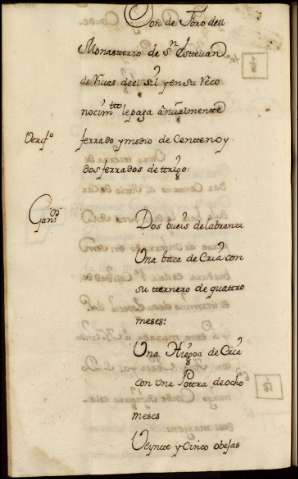 Son de foro del
Monasterio de Sn. Estevan
de Rivas del Sil y en su Reco
nocimto. se paga anualmente
ferrado y medio de Centeno y
dos ferrados de trigo
Gando.
Dos bueis de labranza
Una baca de Cria con
su ternero de quattro
meses:
Una Yegoa de Cria
con una Potra de ocho
meses
Veynte y Cinco obejas